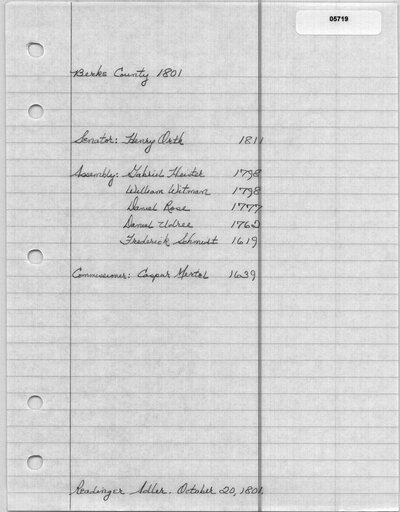 05719
Berks County 1801
Senator: Henry Orth 1811
Assembly: Gabriel Heister 1798
William Witman 1798
Daniel Rose 1777
Daniel Udree 1762
Frederick Schmidt 1619
Commissioner: Caspar Mertel 1639
Readinger Adler. October 20, 1801.